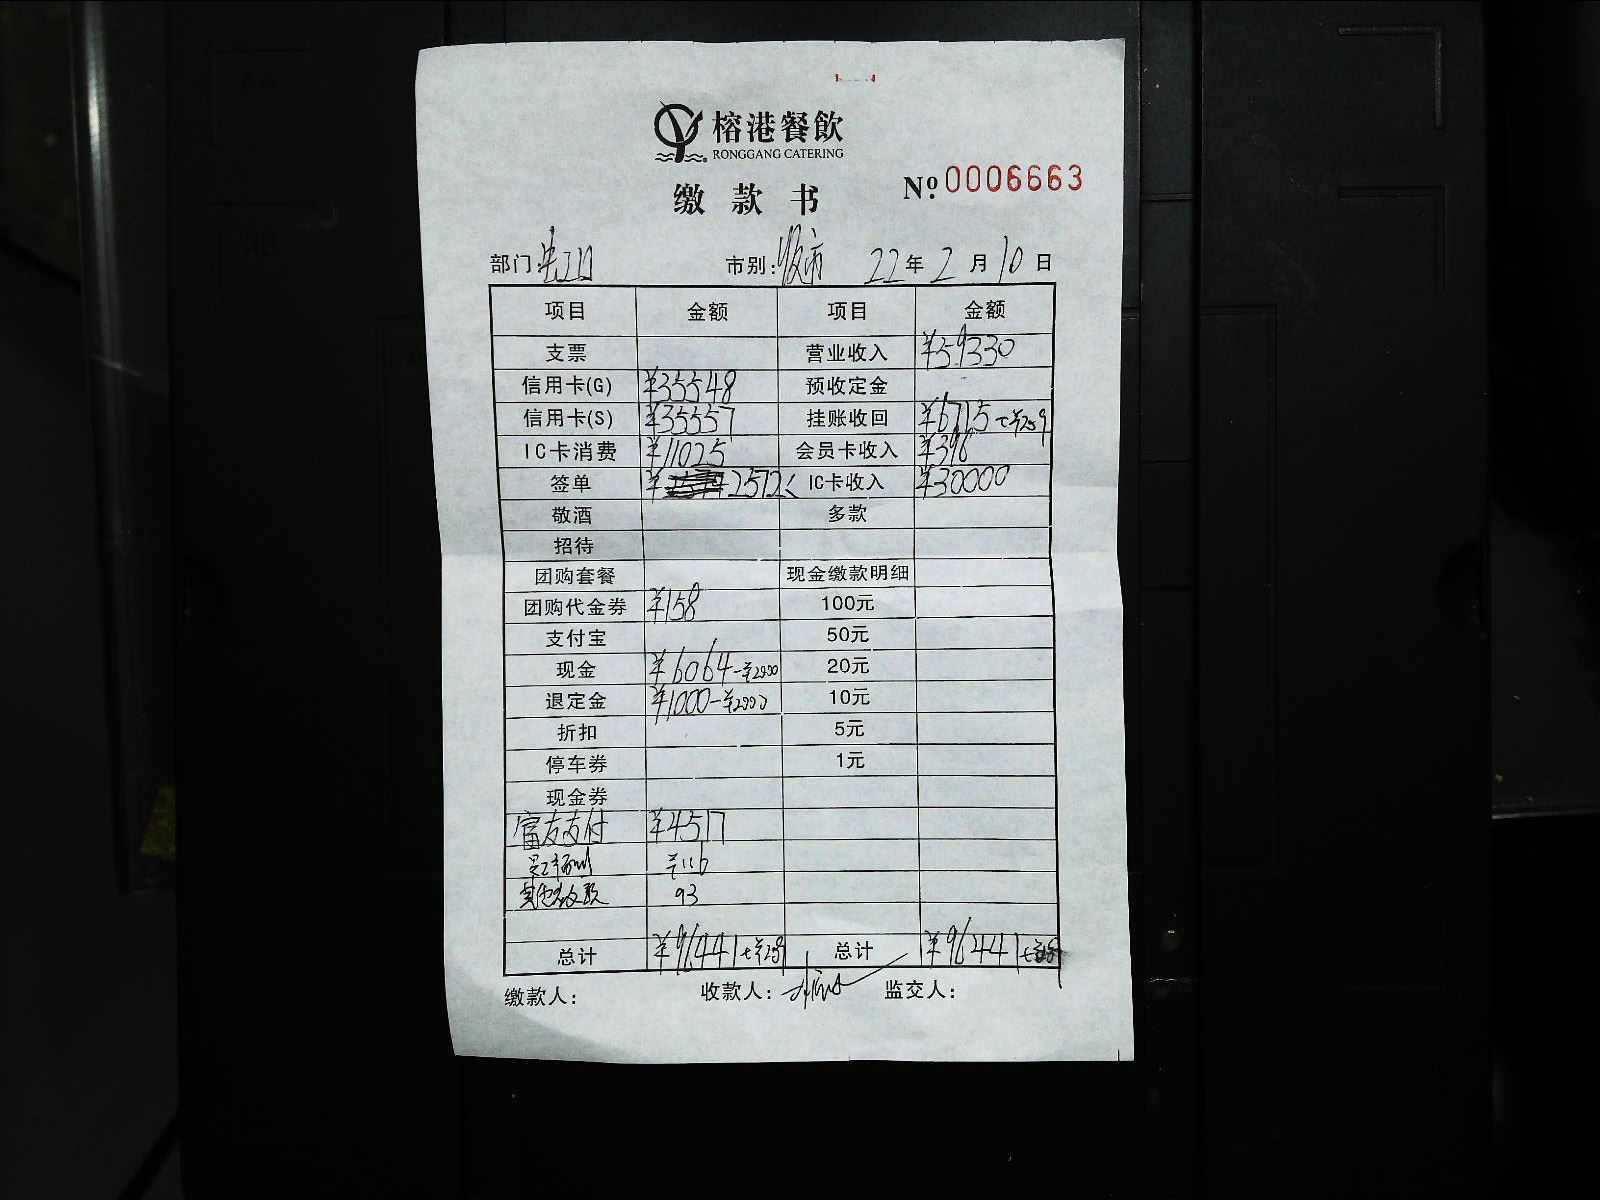 榕港餐飲
RONGGANG CATERING
缴款书 №0006663
部门: 市别:晚市 22年2月10日
项目 金额 项目 金额
支票 营业收入 ¥59330
信用卡(G) ¥35548 预收定金
信用卡(S) ¥35557 挂账收回 ¥6715
IC卡消费 ¥11025 会员卡收入 ¥396
签单 ¥2572 IC卡收入 ¥30000
敬酒 多款
招待
团购套餐 现金缴款明细
团购代金券 ¥158 100元
支付宝 50元
现金 ¥6064 20元
退定金 ¥1000 10元
折扣 5元
停车券 1元
现金券
富友支付 ¥4517
116
93
总计 ¥96441 总计 ¥96441
缴款人: 收款人: 监交人: